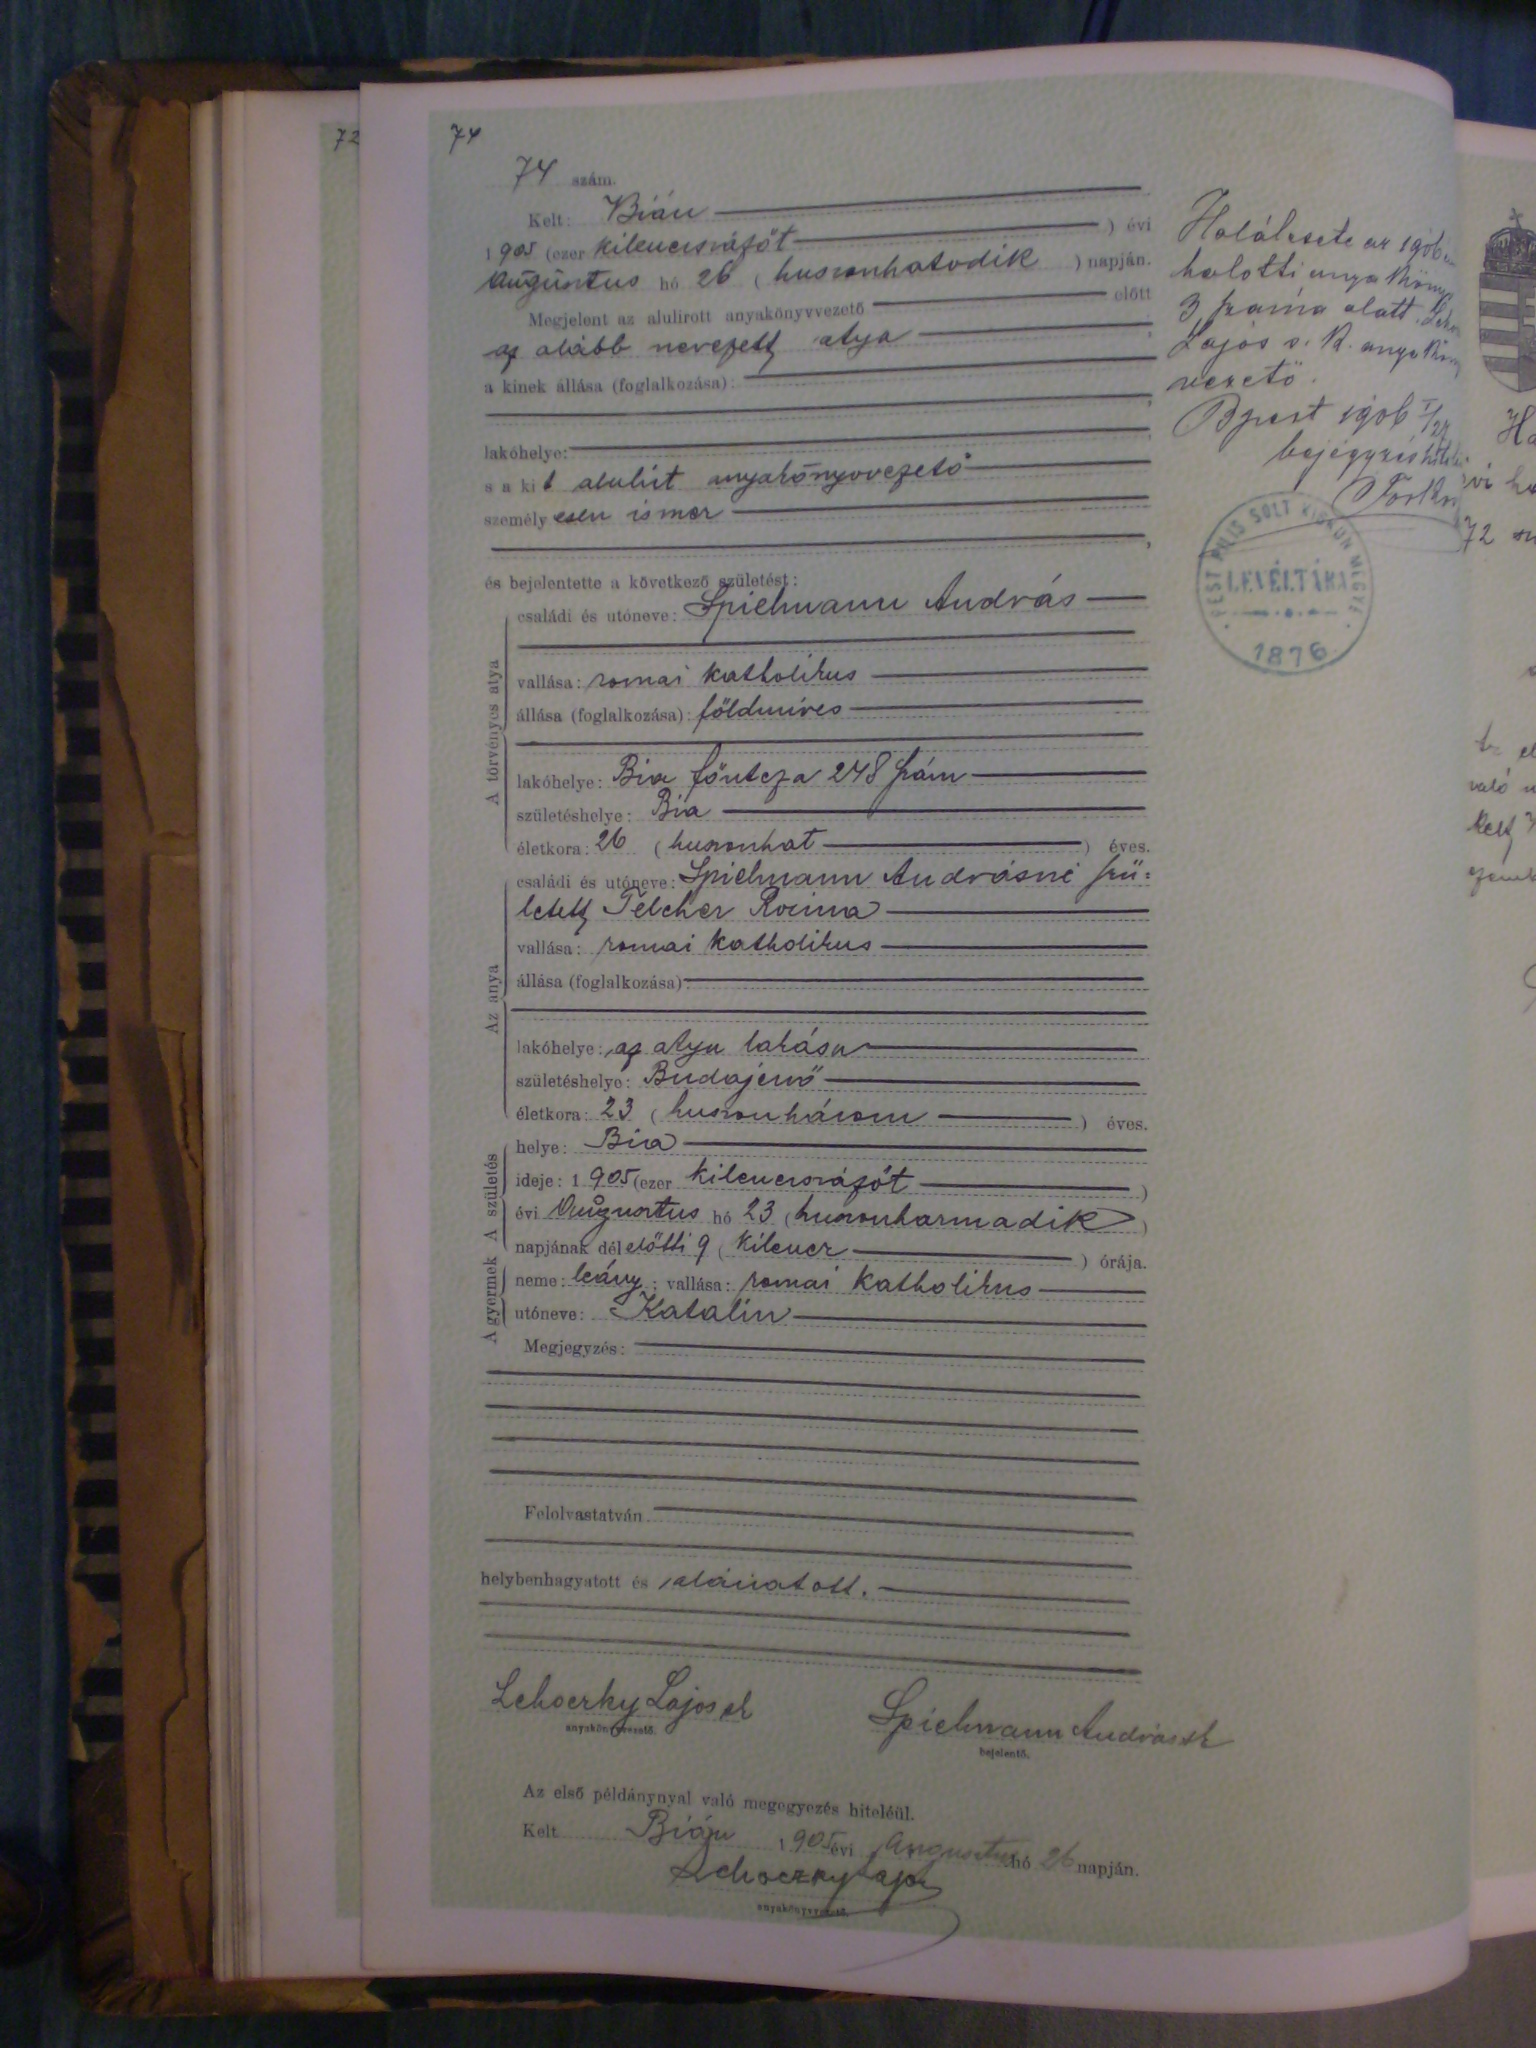 72
74
74 szám.
Kelt: Bián
1905 (ezer kilenczszázöt ) évi
Augusztus hó 26 ( huszonhatodik ) napján.
Megjelent az alulirott anyakönyvvezető előtt
az alább nevezett atya
a kinek állása (foglalkozása):
lakóhelye:
s a kit alulirt anyakönyvvezető
személyesen ismer
és bejelentette a következő születést:
A törvényes atya
családi és utóneve: Spielmann András
vallása: romai katholikus
állása (foglalkozása): földmives
lakóhelye: Bia főutcza 248 szám
születéshelye: Bia
életkora: 26 ( huszonhat ) éves.
Az anya
családi és utóneve: Spielmann Andrásné szü-
letett Telcher Rozina
vallása: romai katholikus
állása (foglalkozása):
lakóhelye: az atya lakása
születéshelye: Budajenő
életkora: 23 ( huszonhárom ) éves.
A születés
helye: Bia
ideje: 1905 (ezer kilenczszázöt )
évi Augusztus hó 23 ( huszonharmadik )
napjának délelőtti 9 ( kilencz ) órája.
A gyermek
neme: leány; vallása: romai katholikus
utóneve: Katalin
Megjegyzés:
Felolvastatván
helybenhagyatott és aláiratott.
Lehoczky Lajos sk
anyakönyvvezető.
Spielmann András sk
bejelentő.
Az első példánynyal való megegyezés hiteléül.
Kelt Bián 1905 évi Augusztus hó 26 napján.
Lehoczky Lajos
anyakönyvvezető.
Halálesete az 1906
halotti anyakönyv
3 száma alatt.
Lajos s. k. anyakön
vezető.
Bpest 1906 I/27
PEST PILIS SOLT KISKUN MEGYE
LEVÉLTÁRA
1876
72
való
Kelt